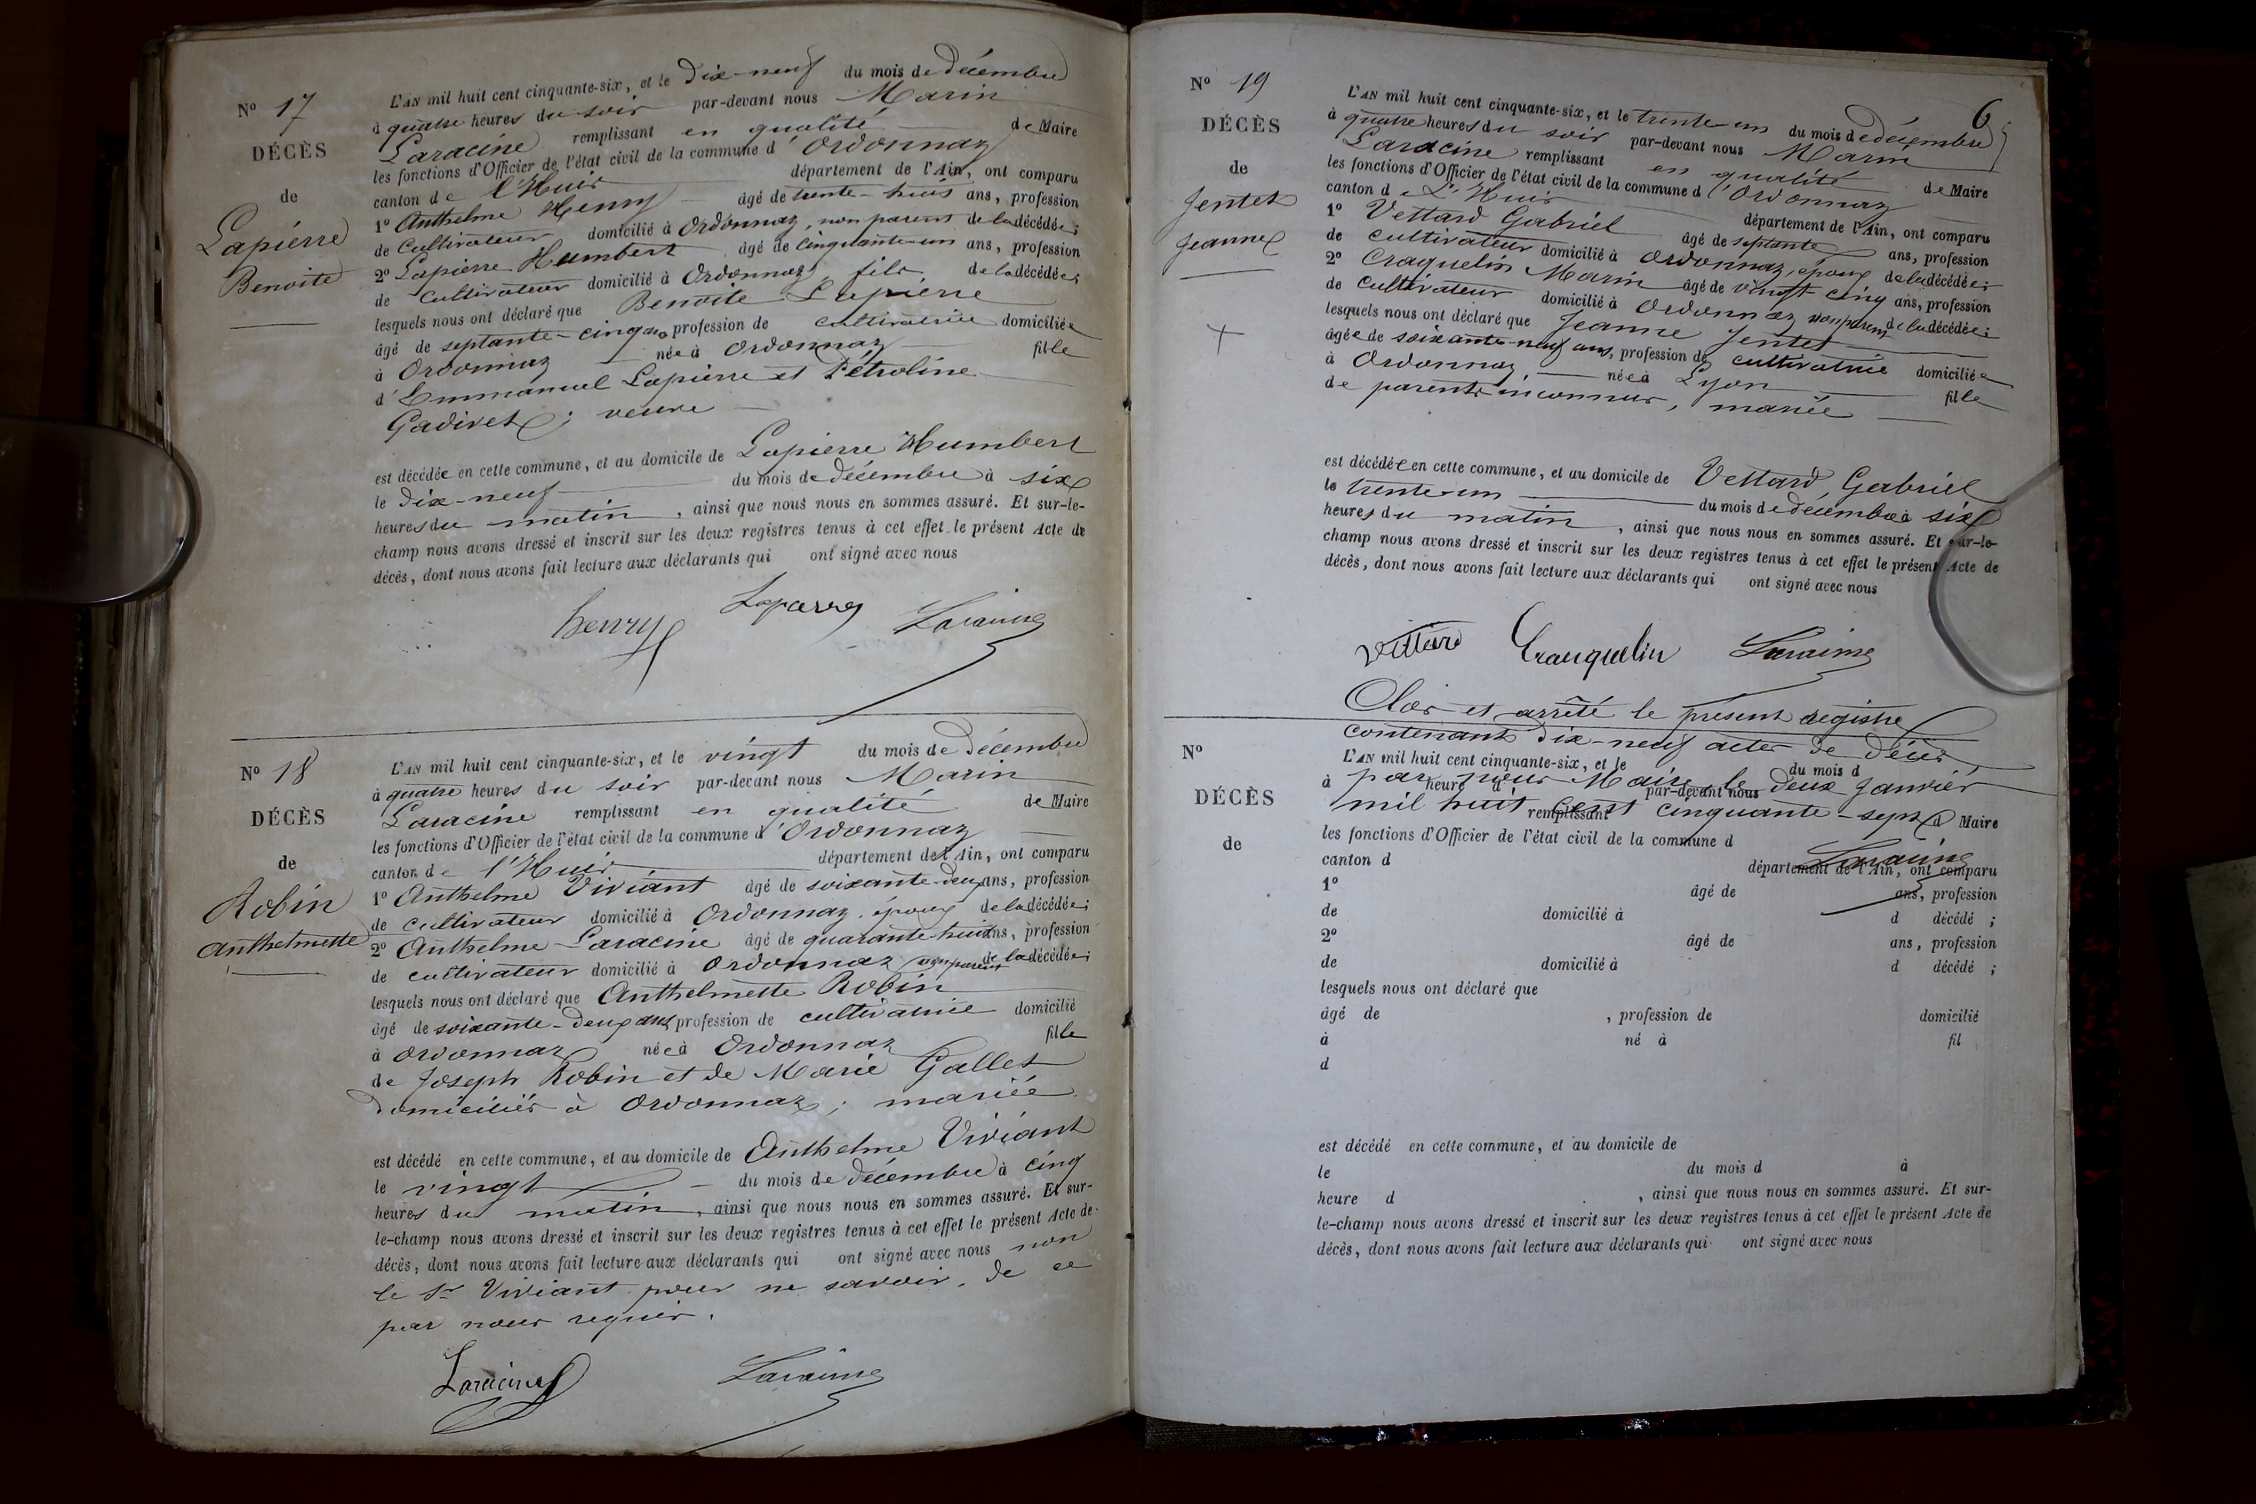 N° 17
DÉCÈS
de
Lapierre
Benoite
L'AN mil huit cent cinquante-six, et le dix-neuf du mois de décembre
à quatre heures du soir par-devant nous Marin
Laracine remplissant en qualité de Maire
les fonctions d'Officier de l'état civil de la commune d'Ordonnaz
canton de l'Huis département de l'Ain, ont comparu
1° Anthelme Henry âgé de trente-huit ans, profession
de cultivateur domicilié à Ordonnaz, non parent de la décédée;
2° Lapierre Humbert âgé de cinquante-un ans, profession
de cultivateur domicilié à Ordonnaz, fils de la décédée;
lesquels nous ont déclaré que Benoite Lapierre
âgé de septante-cinq ans profession de cultivatrice domiciliée
à Ordonnaz née à Ordonnaz fille
d'Emmanuel Lapierre et Pétroline
Gadivet; veuve
est décédée en cette commune, et au domicile de Lapierre Humbert
le dix-neuf du mois de décembre à six
heures du matin, ainsi que nous nous en sommes assuré. Et sur-le-
champ nous avons dressé et inscrit sur les deux registres tenus à cet effet le présent Acte de
décès, dont nous avons fait lecture aux déclarants qui ont signé avec nous
henry Lapierre Laracine
N° 18
DÉCÈS
de
Robin
Anthelmette
L'AN mil huit cent cinquante-six, et le vingt du mois de décembre
à quatre heures du soir par-devant nous Marin
Laracine remplissant en qualité de Maire
les fonctions d'Officier de l'état civil de la commune d'Ordonnaz
canton de l'Huis département de l'Ain, ont comparu
1° Anthelme Viviant âgé de soixante-deux ans, profession
de cultivateur domicilié à Ordonnaz, époux de la décédée;
2° Anthelme Laracine âgé de quarante-huit ans, profession
de cultivateur domicilié à Ordonnaz, non parent de la décédée;
lesquels nous ont déclaré que Anthelmette Robin
âgé de soixante-deux ans profession de cultivatrice domicilié
à Ordonnaz née à Ordonnaz fille
de Joseph Robin et de Marie Gallet
domiciliés à Ordonnaz; mariée
est décédé en cette commune, et au domicile de Anthelme Viviant
le vingt du mois de décembre à cinq
heures du matin, ainsi que nous nous en sommes assuré. Et sur-
le-champ nous avons dressé et inscrit sur les deux registres tenus à cet effet le présent Acte de
décès, dont nous avons fait lecture aux déclarants qui ont signé avec nous non
le Sr Viviant pour ne savoir, de ce
par nous requis.
Laracine Laracine
6
N° 19
DÉCÈS
de
Jentet
Jeanne
L'AN mil huit cent cinquante-six, et le trente-un du mois de décembre
à quatre heures du soir par-devant nous Marin
Laracine remplissant en qualité de Maire
les fonctions d'Officier de l'état civil de la commune d'Ordonnaz
canton de L'Huis département de l'Ain, ont comparu
1° Vettard Gabriel âgé de septante ans, profession
de cultivateur domicilié à Ordonnaz, époux de la décédée;
2° Craquelin Marin âgé de vingt-cinq ans, profession
de cultivateur domicilié à Ordonnaz non parent de la décédée;
lesquels nous ont déclaré que Jeanne Jentet
âgée de soixante-neuf ans, profession de cultivatrice domiciliée
à Ordonnaz, née à Lyon fille
de parents inconnus, mariée
est décédée en cette commune, et au domicile de Vettard, Gabriel
le trente-un du mois de décembre à six
heures du matin, ainsi que nous nous en sommes assuré. Et sur-le-
champ nous avons dressé et inscrit sur les deux registres tenus à cet effet le présent Acte de
décès, dont nous avons fait lecture aux déclarants qui ont signé avec nous
Vettard Crauquelin Laracine
Clos et arrêté le présent registre
contenant dix-neuf actes de décès,
par nous Maire le deux Janvier
mil huit cent cinquante-sept
Laracine
N°
DÉCÈS
de
L'AN mil huit cent cinquante-six, et le du mois d
à heure d par-devant nous
remplissant d Maire
les fonctions d'Officier de l'état civil de la commune d
canton d département de l'Ain, ont comparu
1° âgé de ans, profession
de domicilié à d décédé ;
2° âgé de ans, profession
de domicilié à d décédé ;
lesquels nous ont déclaré que
âgé de , profession de domicilié
à né à fil
d
est décédé en cette commune, et au domicile de
le du mois d à
heure d , ainsi que nous nous en sommes assuré. Et sur-
le-champ nous avons dressé et inscrit sur les deux registres tenus à cet effet le présent Acte de
décès, dont nous avons fait lecture aux déclarants qui ont signé avec nous